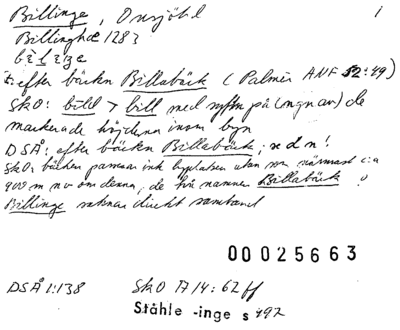 Billinge, Onsjö hd 1
Billinghæ 1283
F: efter bäcken Billabäck (Palmér ANF 52:49)
SkO: böld > bill med syftn på (ngn av) de
markerade höjderna inom byn
DSÅ: efter bäcken Billabäck; se d n!
SkO: bäcken passerar ink byplatsen utan som närmast c:a
900 m nv om denna, de två namnen Billabäck o
Billinge saknar direkt samband
00025663
DSÅ 1:138 SkO 17/4:62 ff
Ståhle -inge s 492